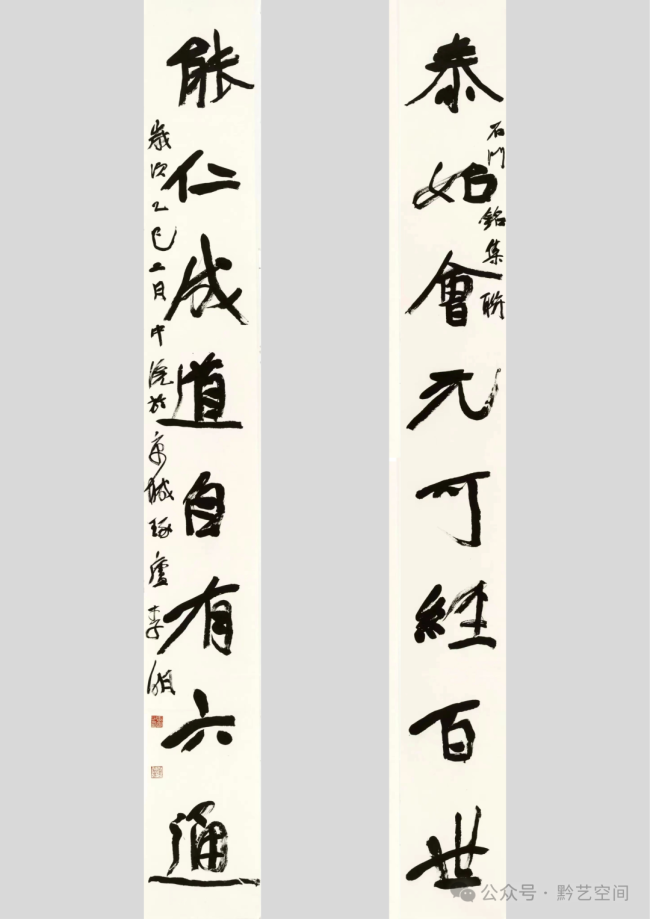 泰始會元可經百世
石門銘集聯
能仁成道自有六通
歲次乙巳二月中浣於京城琢廬李
公众号·黔艺空间